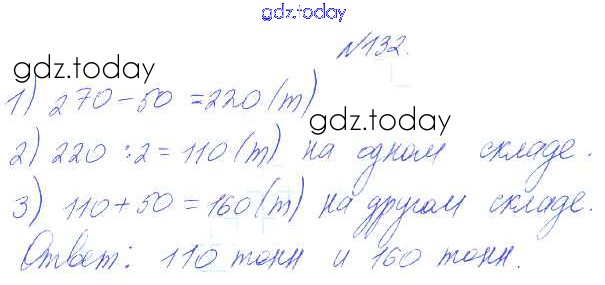 gdz.today
№132.
gdz.today
1) 270-50=220(т)
gdz.today
2) 220:2=110(т) на одном складе.
3) 110+50=160(т) на другом складе.
Ответ: 110 тонн и 160 тонн.